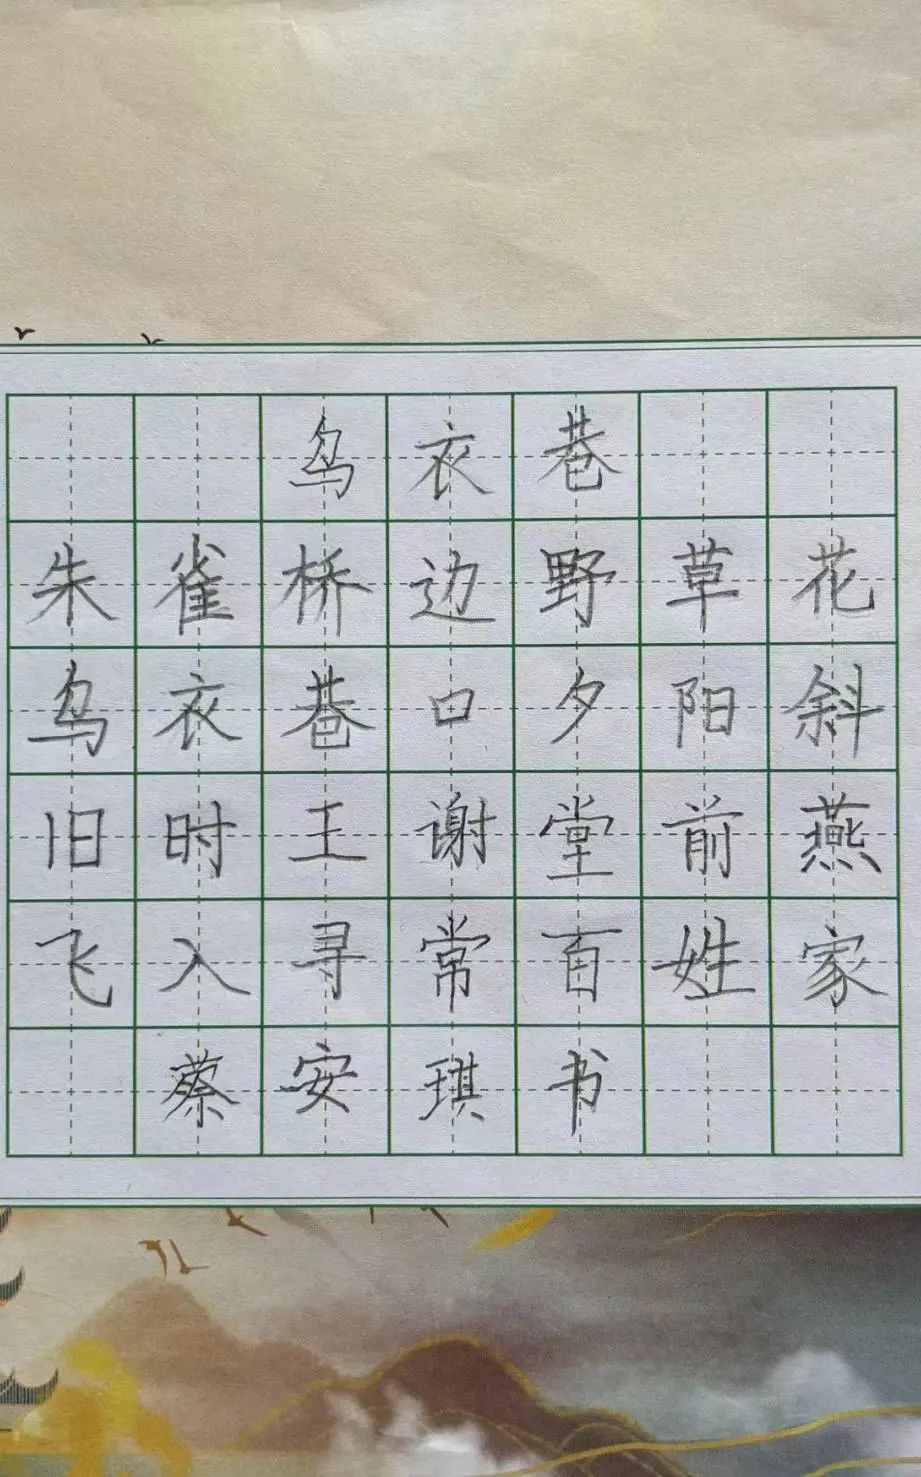 乌衣巷
朱雀桥边野草花
乌衣巷口夕阳斜
旧时王谢堂前燕
飞入寻常百姓家
蔡安琪书